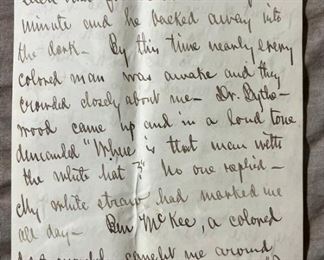 minute and he backed away into
the dark - By this time nearly every
colored man was awake and they
crowded closely about me - Dr. Bythe-
wood came up and in a loud tone
demanded "Where is that man with
the white hat?" No one replied -
My white straw had marked me
all day - Ben McKee, a colored
caught me around